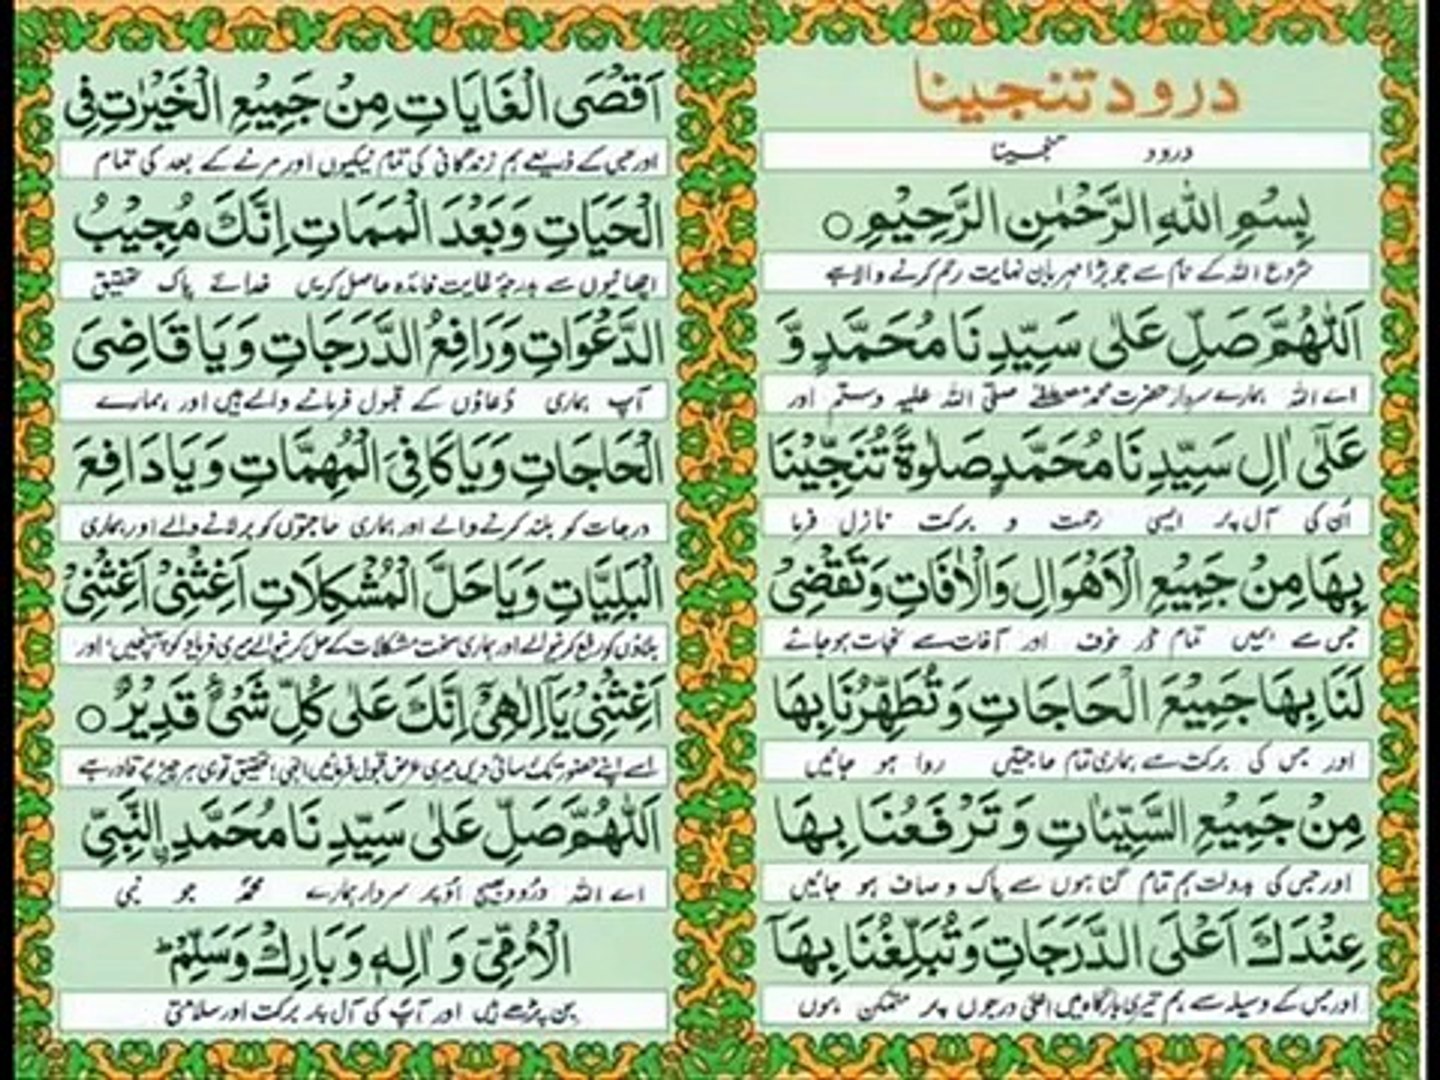 درود تنجینا
درود تنجینا
بِسْمِ اللهِ الرَّحْمٰنِ الرَّحِيْمِ ○
شروع اللہ کے نام سے جو بڑا مہربان نہایت رحم کرنے والا ہے
اَللّٰهُمَّ صَلِّ عَلٰى سَيِّدِنَا مُحَمَّدٍ وَّ
اے اللہ ہمارے سردار حضرت محمد مصطفےٰ صلی اللہ علیہ وسلم اور
عَلٰٓى اٰلِ سَيِّدِنَا مُحَمَّدٍ صَلٰوةً تُنَجِّيْنَا
اُن کی آل پر ایسی رحمت و برکت نازل فرما
بِهَا مِنْ جَمِيْعِ الْاَهْوَالِ وَالْاٰفَاتِ وَتَقْضِىْ
جس سے ہمیں تمام ڈر خوف اور آفات سے نجات ہو جائے
لَنَا بِهَا جَمِيْعَ الْحَاجَاتِ وَتُطَهِّرُنَا بِهَا
اور جس کی برکت سے ہماری تمام حاجتیں روا ہو جائیں
مِنْ جَمِيْعِ السَّيِّئَاتِ وَتَرْفَعُنَا بِهَا
اور جس کی بدولت ہم تمام گناہوں سے پاک و صاف ہو جائیں
عِنْدَكَ اَعْلَى الدَّرَجَاتِ وَتُبَلِّغُنَا بِهَآ
اور جس کے وسیلہ سے ہم تیری بارگاہ میں اعلیٰ درجوں پر متمکن ہوں
اَقْصَى الْغَايَاتِ مِنْ جَمِيْعِ الْخَيْرٰتِ فِى
اور جس کے ذریعے ہم زندگانی کی تمام نیکیوں اور مرنے کے بعد کی تمام
الْحَيَاتِ وَبَعْدَ الْمَمَاتِ اِنَّكَ مُجِيْبُ
اچھائیوں سے بدرجۂ غایت فائدہ حاصل کریں خدائے پاک تحقیق
الدَّعْوَاتِ وَرَافِعُ الدَّرَجَاتِ وَيَا قَاضِىَ
آپ ہماری دُعاؤں کے قبول فرمانے والے ہیں اور ہمارے
الْحَاجَاتِ وَيَا كَافِىَ الْمُهِمَّاتِ وَيَا دَافِعَ
درجات کو بلند کرنے والے اور ہماری حاجتوں کو بر لانے والے اور ہماری
الْبَلِيَّاتِ وَيَا حَلَّ الْمُشْكِلَاتِ اَغِثْنِىْ اَغِثْنِىْ
بلاؤں کو رفع کرنیوالے اور ہماری سخت مشکلات کے حل کرنیوالے میری فریاد کو پہنچیں اور
اَغِثْنِىْ يَآ اِلٰهِىْٓ اِنَّكَ عَلٰى كُلِّ شَىْءٍ قَدِيْرٌ ○
اسے اپنے حضور تک رسائی دیں میری عرض قبول فرمائیں الٰہی! تحقیق تو ہی ہر چیز پر قادر ہے
اَللّٰهُمَّ صَلِّ عَلٰى سَيِّدِنَا مُحَمَّدِ النَّبِيِّ
اے اللہ درود بھیج اوپر سردار ہمارے محمدؐ جو نبی
الْاُمِّيِّ وَ اٰلِهٖ وَبَارِكْ وَسَلِّمْ ط
بن پڑھے ہیں اور آپؐ کی آل پر برکت اور سلامتی